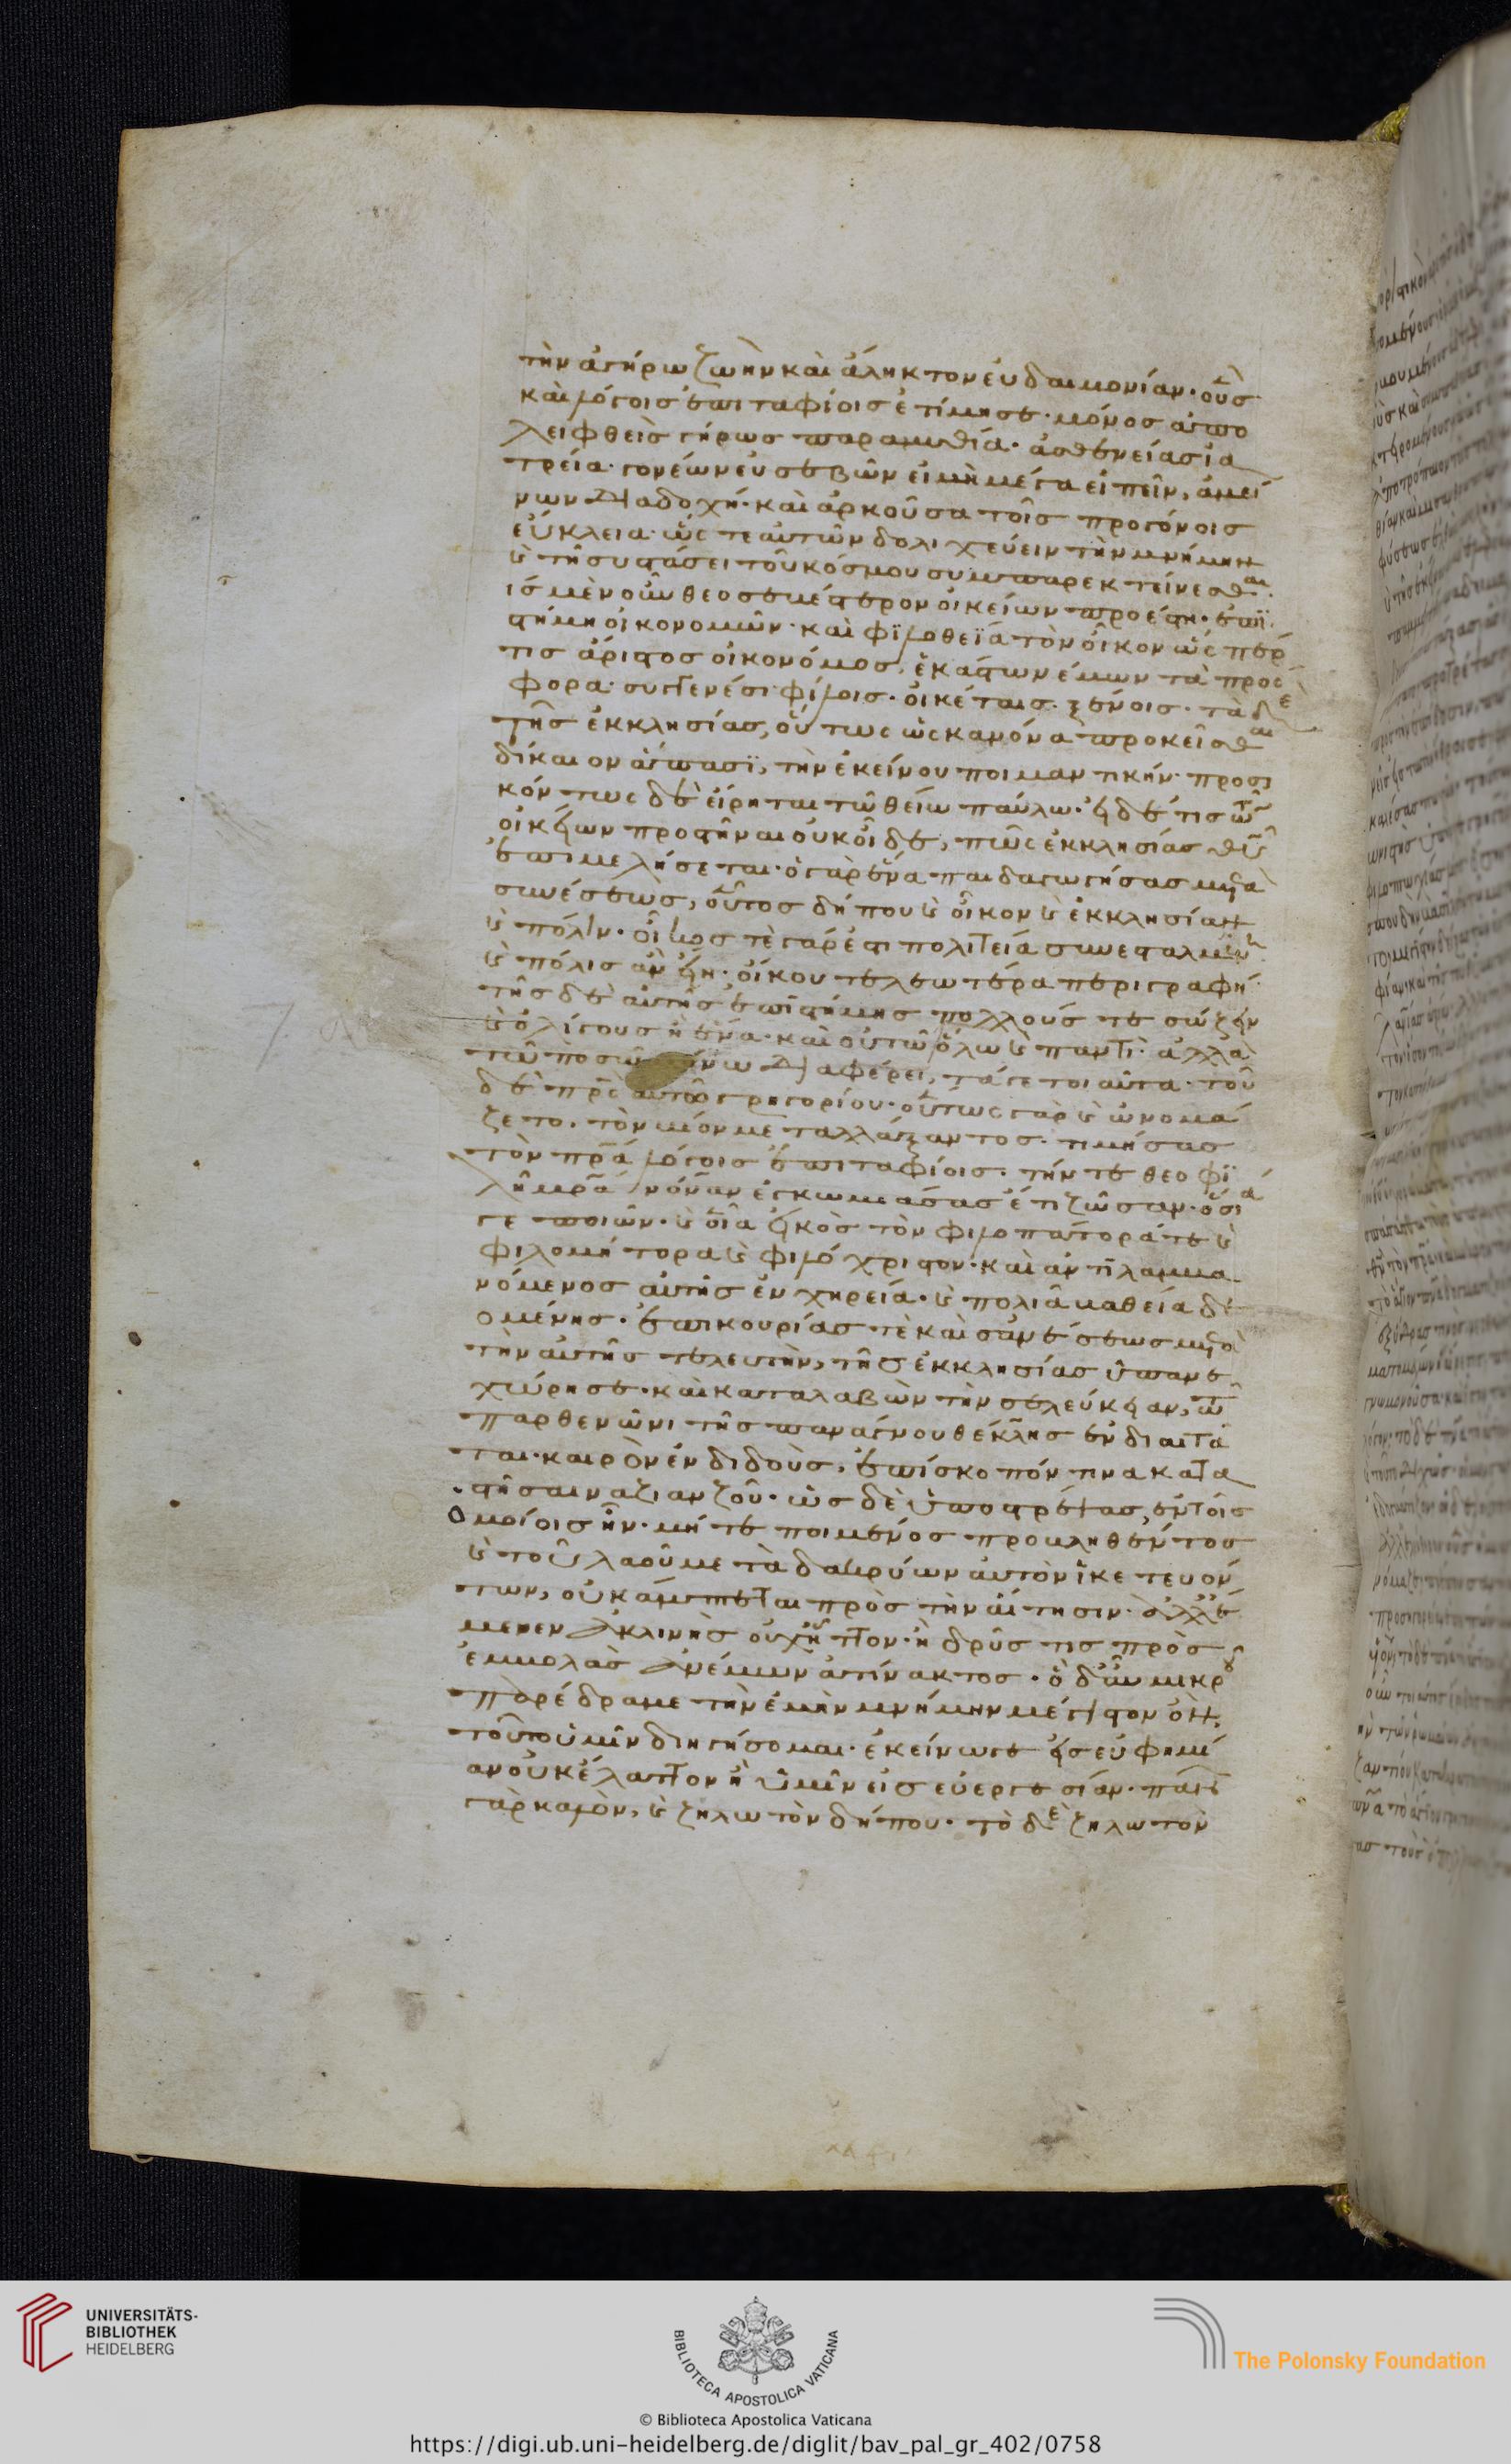 τὴν ἀγήρω ζωὴν καὶ ἄληκτον εὐδαιμονίαν· οὓς
καὶ λόγοις ἐπιταφίοις ἐτίμησε· μόνος ἀπο
λειφθεὶς γήρως παραμυθία· ἀσθενείας ἰα
τρεία· γονέων εὐσεβῶν εἰ μὴ μέγα εἰπεῖν, ἀμεί
νων διαδοχή· καὶ ἀρκοῦσα τοῖς προγόνοις
εὔκλεια· ὥς τε αὐτῶν δολιχεύειν τὴν μνήμην
καὶ τῆ συστάσει τοῦ κόσμου συμπαρεκτείνεσθαι·
ὁ μὲν οὖν θεοσεβέστερον οἰκείων προέστη· ἐπι
στήμη οἰκονομῶν· καὶ φιλοθεΐα τὸν οἶκον ὥσπερ
τις ἄριστος οἰκονόμος, ἑκάστων νέμων τὰ πρόσ
φορα· συγγενέσι φίλοις· οἰκέταις· ξένοις· τὰ δὲ
τῆς ἐκκλησίας, οὕτως ὡς κανόνα προκεῖσθαι
δίκαιον ἅπασι, τὴν ἐκείνου ποιμαντικήν· προση
κόντως δὲ εἴρηται τῶ θείω παύλω· εἰ δέ τις τῶν
οἰκείων προστῆναι οὐκ οἶδε, πῶς ἐκκλησίας θῦ
ἐπιμελήσεται· ὁ γὰρ ἕνα παιδαγωγήσας μετὰ
συνέσεως, οὗτος δήπου καὶ οἶκον καὶ ἐκκλησίαν
καὶ πόλιν· οἶκος τὲ γάρ ἐστι πολιτεία συνεσταλμένη·
καὶ πόλις ἂν εἴη· οἴκου τελεωτέρα περιγραφή·
τῆς δὲ αὐτῆς ἐπιστήμης πολλούς τε σώζειν
καὶ ὀλίγους ἢ ἕνα· καὶ οὐ τῶ ὅλω καὶ παντὶ· ἀλλὰ
τῶ ποσῶ μόνω διαφέρει, τά γε τοιαῦτα· τοῦ
δὲ πρς αὐτοῦ γρηγορίου· οὕτως γὰρ καὶ ὠνομά
ζετο· τὸν βίον μεταλλάξαντος· τιμήσας
τὸν πρα λόγοις ἐπιταφίοις· τήν τε θεοφι
λῆ μρα νόνναν ἐγκωμιάσας ἔτι ζῶσαν· ὅσιά
γε ποιῶν· καὶ οἷα εἰκὸς τὸν φιλοπάτορά τε καὶ
φιλομήτορα καὶ φιλόχριστον· καὶ ἀντιλαμβα
νόμενος αὐτῆς ἐν χηρεία· καὶ πολιᾶ βαθεία δε
ομένης· ἐπικουρίας τὲ καὶ συνέσεως μετὰ
τὴν αὐτῆς τελευτὴν, τῆς ἐκκλησίας ὑπανε
χώρησε· καὶ καταλαβὼν τὴν σελεύκειαν, τῶ
παρθενῶνι τῆς παναγνου θέκλης ἐνδιαιτᾶ
ται· καιρὸν ἐνδιδοὺς, ἐπίσκοπόν τινα κατα
στῆσαι ναζιανζοῦ· ὡς δὲ ὑποστρέψας, ἐν τοῖς
ὁμοίοις ἦν· μήτε ποιμένος προκληθέντος
καὶ τοῦ λαοῦ μετὰ δακρύων αὐτὸν ἱκετευόν
των, οὐ κάμπτεται πρὸς τὴν αἴτησιν· ἀλλ' ἔ
μενεν ἀκλινὴς οὐχ ἧττον· ἢ δρῦς τις πρὸς
ἐμβολὰς ἀνέμων ἀτίνακτος· ὃ δ' οὖν μικροῦ
παρέδραμε τὴν ἐμὴν μνήμην μέγιστον ὂν,
τοῦτο ὑμῖν διηγήσομαι· ἐκείνω τε εἰς εὐφημί
αν οὐκ ἔλαττον ἢ ὑμῖν εἰς εὐεργεσίαν· πᾶν
γὰρ καλὸν, καὶ ζηλωτὸν δήπου· τὸ δὲ ζηλωτὸν
UNIVERSITÄTS-
BIBLIOTHEK
HEIDELBERG
BIBLIOTECA APOSTOLICA VATICANA
The Polonsky Foundation
© Biblioteca Apostolica Vaticana
https://digi.ub.uni-heidelberg.de/diglit/bav_pal_gr_402/0758